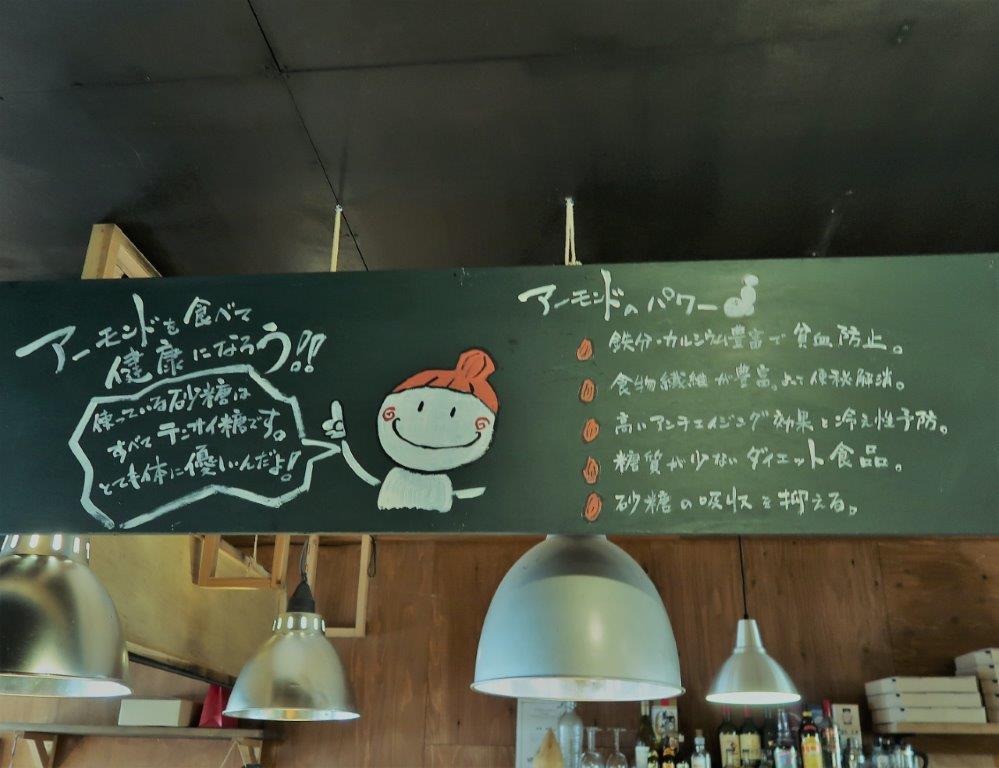 アーモンドを食べて
健康になろう!!
使っている砂糖は
すべてテンサイ糖です。
とても体に優しいんだよ!
アーモンドのパワー
鉄分・カルシウム豊富で貧血防止。
食物繊維が豊富。よって便秘解消。
高いアンチエイジング効果と冷え性予防。
糖質が少ないダイエット食品。
砂糖の吸収を抑える。